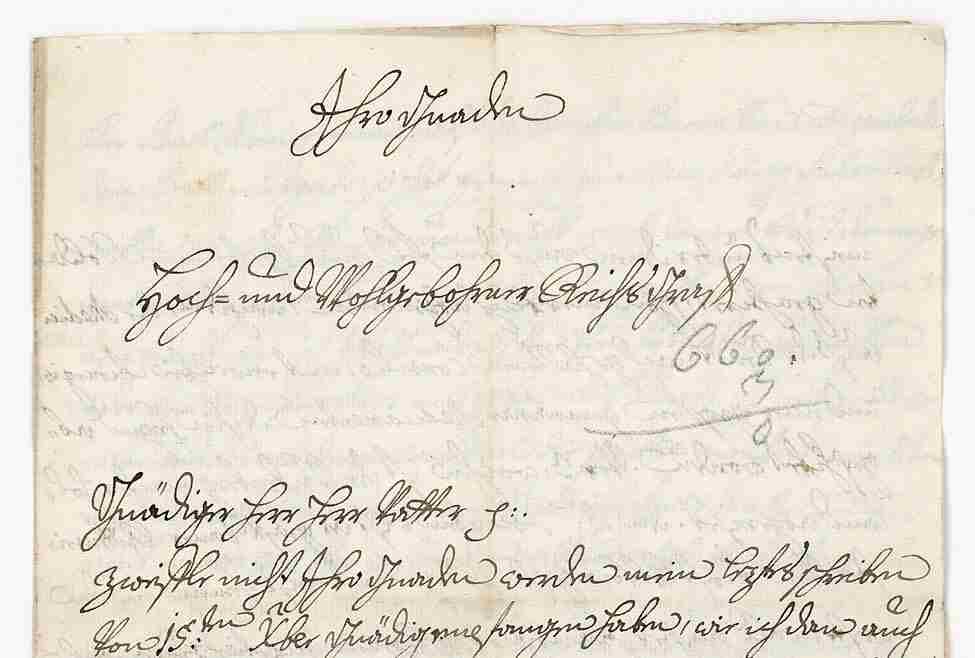 Ihro Gnaden
Hoch= und Wohlgebohrner Reichs Graff
6.6
3
0
Gnädiger Herr Herr Vatter p:.
Zweiffle nicht Ihro Gnaden werden mein leztes schreiben
Von 15:ten Xber Gnädig empfangen haben, wie ich dan auch